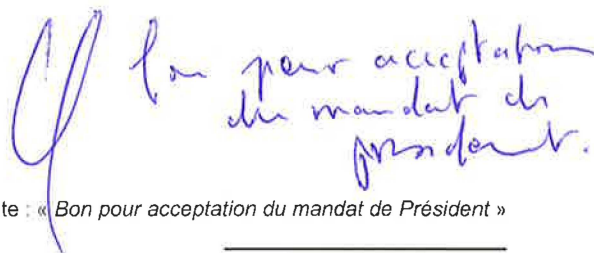 Bon pour acceptation
du mandat de
président.
te : « Bon pour acceptation du mandat de Président »